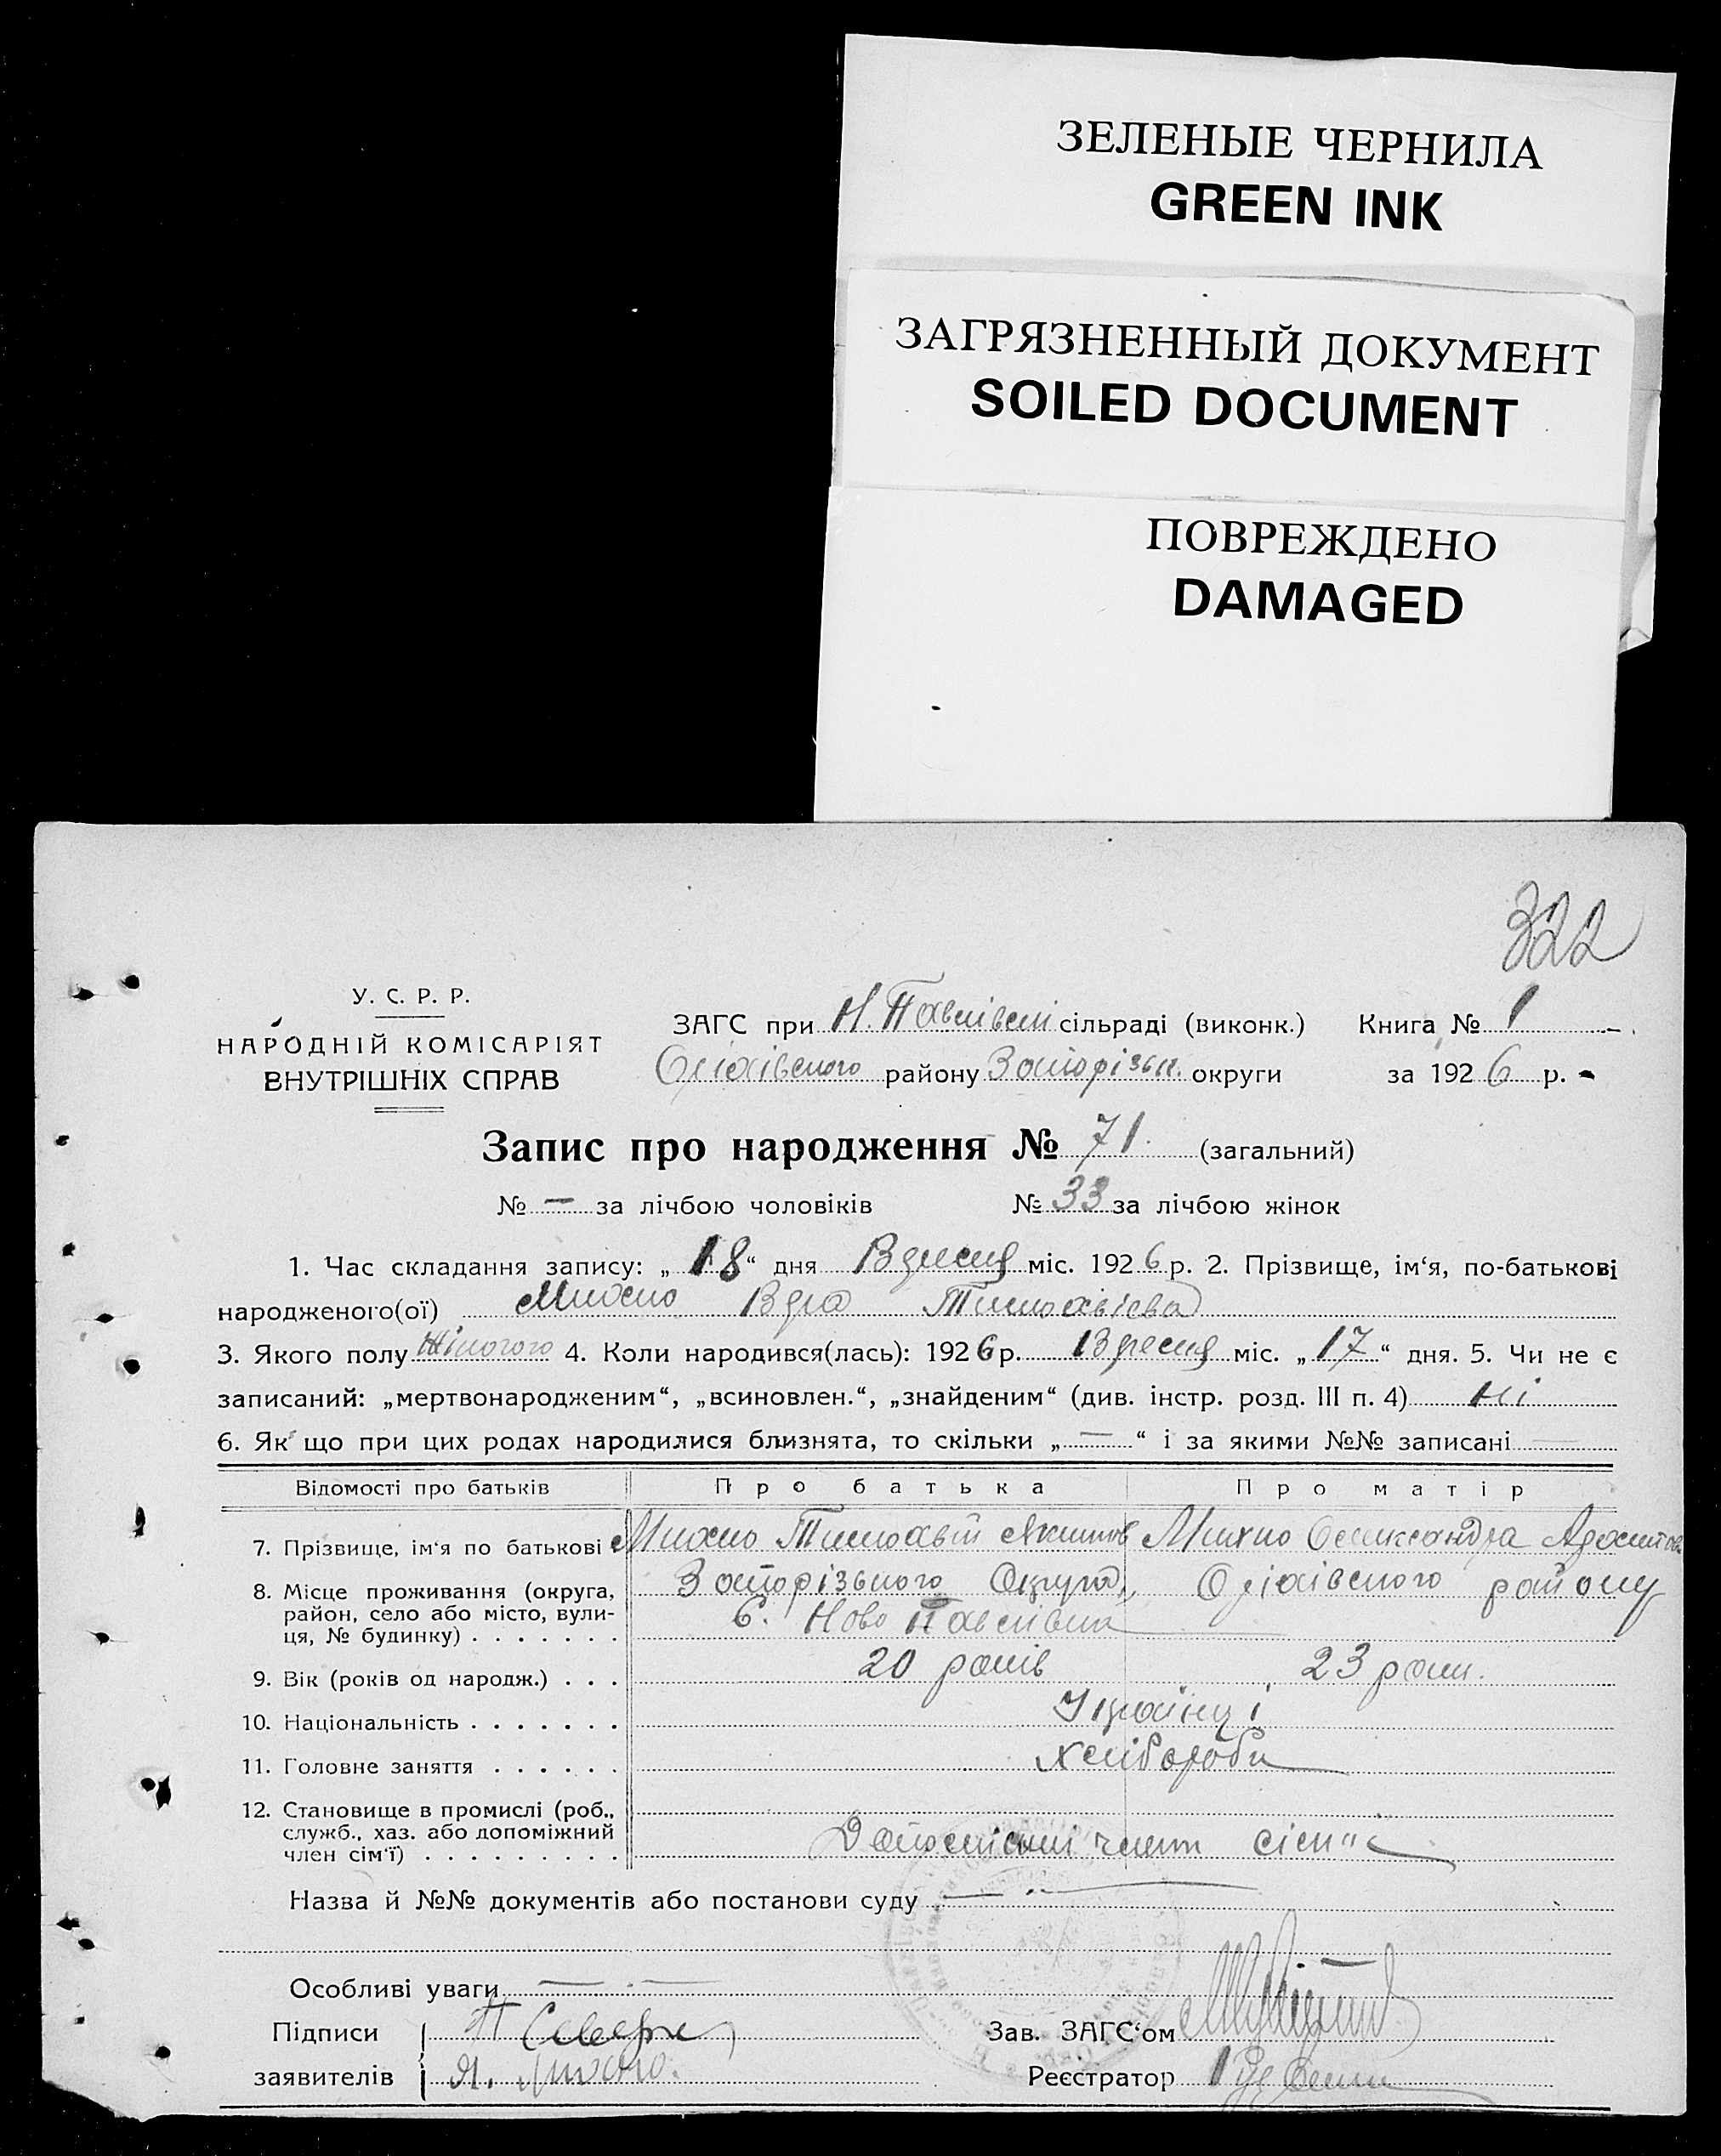 ЗЕЛЕНЫЕ ЧЕРНИЛА
GREEN INK
ЗАГРЯЗНЕННЫЙ ДОКУМЕНТ
SOILED DOCUMENT
ПОВРЕЖДЕНО
DAMAGED
322
У. С. Р. Р.
НАРОДНІЙ КОМІСАРІЯТ
ВНУТРІШНІХ СПРАВ
ЗАГС при Н. Павлівські сільраді (виконк.) Книга № 1
Оріхівського району Запорізьк. округи за 1926 р.
Запис про народження № 71 (загальний)
№ — за лічбою чоловіків № 33 за лічбою жінок
1. Час складання запису: „18“ дня Вересня міс. 1926 р. 2. Прізвище, ім‘я, по-батькові
народженого(ої) Михно Віра Тимофієва
3. Якого полу Жіночого 4. Коли народився(лась): 1926 р. Вересня міс. „17“ дня. 5. Чи не є
записаний: „мертвонародженим“, „всиновлен.“, „знайденим“ (див. інстр. розд. III п. 4) Ні
6. Як що при цих родах народилися близнята, то скільки „—“ і за якими №№ записані —
Відомості про батьків Про батька Про матір
7. Прізвище, ім‘я по батькові Михно Тимофій Якимов Михно Олександра
8. Місце проживання (округа, район, село або місто, вулиця, № будинку) Запорізького Округа, Оріхівського району
С. Ново Павлівка
9. Вік (років од народж.) 20 років 23 роки.
10. Національність Українці
11. Головне заняття Хлібороби
12. Становище в промислі (роб.,
служб., хаз. або допоміжний
член сім‘ї) члени сім'ї
Назва й №№ документів або постанови суду —
Особливі уваги —
Підписи
заявителів Я. Михно.
Зав. ЗАГС‘ом
Реєстратор